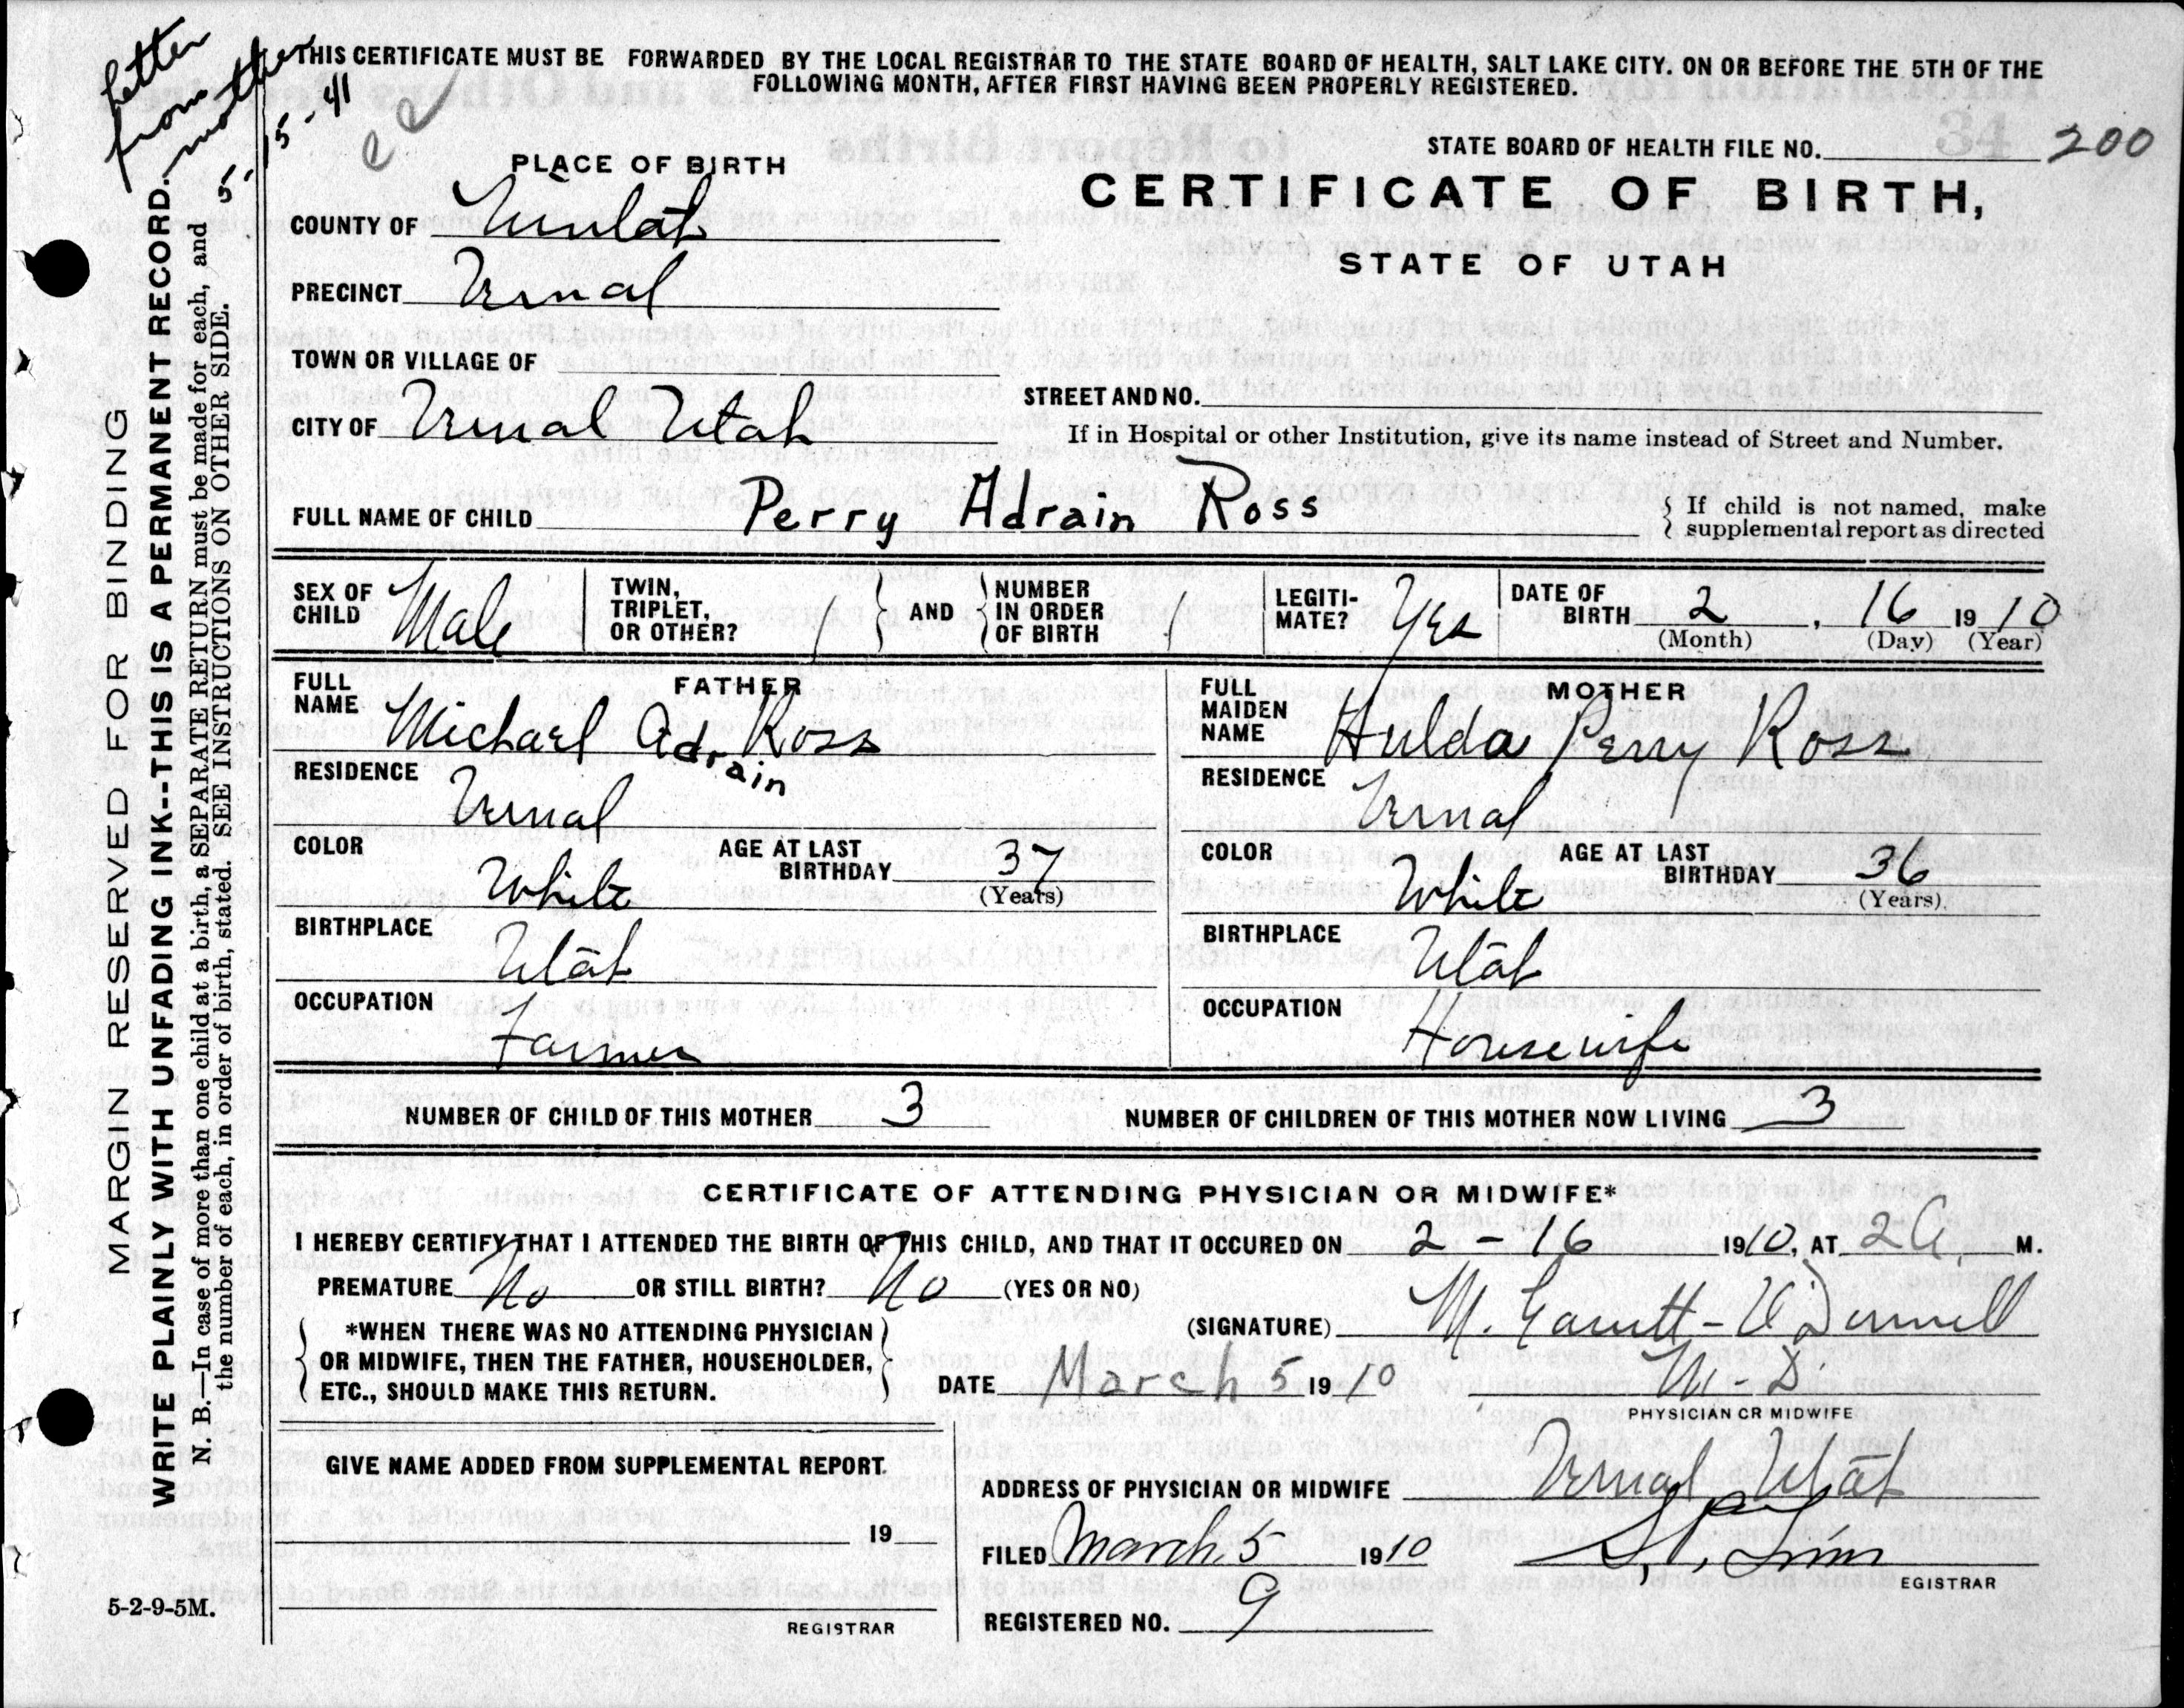 letter
from
mother
5-15-41
THIS CERTIFICATE MUST BE FORWARDED BY THE LOCAL REGISTRAR TO THE STATE BOARD OF HEALTH, SALT LAKE CITY. ON OR BEFORE THE 5TH OF THE
FOLLOWING MONTH, AFTER FIRST HAVING BEEN PROPERLY REGISTERED.
STATE BOARD OF HEALTH FILE NO. 34 200
PLACE OF BIRTH
CERTIFICATE OF BIRTH,
STATE OF UTAH
COUNTY OF
PRECINCT Vernal
TOWN OR VILLAGE OF
CITY OF Vernal Utah
STREET AND NO.
If in Hospital or other Institution, give its name instead of Street and Number.
FULL NAME OF CHILD Perry Adrain Ross
{ If child is not named, make
supplemental report as directed
SEX OF CHILD Male
TWIN, TRIPLET, OR OTHER? 1 } AND { NUMBER IN ORDER OF BIRTH 1
LEGITI-MATE? Yes
DATE OF BIRTH 2, 16 1910
(Month) (Day) (Year)
FATHER
FULL NAME Michael Ad. Ross
Adrain
RESIDENCE Vernal
COLOR White
AGE AT LAST BIRTHDAY 37
(Years)
BIRTHPLACE Utah
OCCUPATION Farmer
MOTHER
FULL MAIDEN NAME Hulda Perry Ross
RESIDENCE Vernal
COLOR White
AGE AT LAST BIRTHDAY 36
(Years)
BIRTHPLACE Utah
OCCUPATION Housewife
NUMBER OF CHILD OF THIS MOTHER 3
NUMBER OF CHILDREN OF THIS MOTHER NOW LIVING 3
CERTIFICATE OF ATTENDING PHYSICIAN OR MIDWIFE*
I HEREBY CERTIFY THAT I ATTENDED THE BIRTH OF THIS CHILD, AND THAT IT OCCURED ON 2-16 1910, AT 2 A. M.
PREMATURE No OR STILL BIRTH? No (YES OR NO)
(SIGNATURE) M.
M-D
PHYSICIAN OR MIDWIFE
{ *WHEN THERE WAS NO ATTENDING PHYSICIAN
OR MIDWIFE, THEN THE FATHER, HOUSEHOLDER,
ETC., SHOULD MAKE THIS RETURN. }
DATE March 5 1910
GIVE NAME ADDED FROM SUPPLEMENTAL REPORT.
19
REGISTRAR
ADDRESS OF PHYSICIAN OR MIDWIFE Vernal Utah
FILED March 5 1910
EGISTRAR
REGISTERED NO. 9
MARGIN RESERVED FOR BINDING
WRITE PLAINLY WITH UNFADING INK--THIS IS A PERMANENT RECORD.
N. B.—In case of more than one child at a birth, a SEPARATE RETURN must be made for each, and
the number of each, in order of birth, stated. SEE INSTRUCTIONS ON OTHER SIDE.
5-2-9-5M.